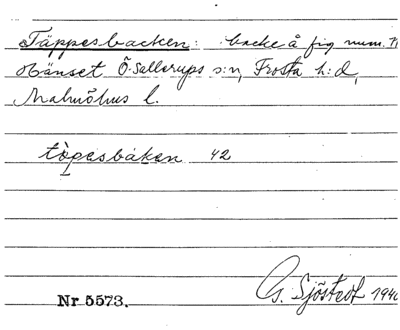 Täppesbacken: backe å fig num. 71
Hänset Ö. Sallerups s:n, Frosta h:d,
Malmöhus l.
täpesbakan 42
Nr 5573.
G. Sjöstedt 1940